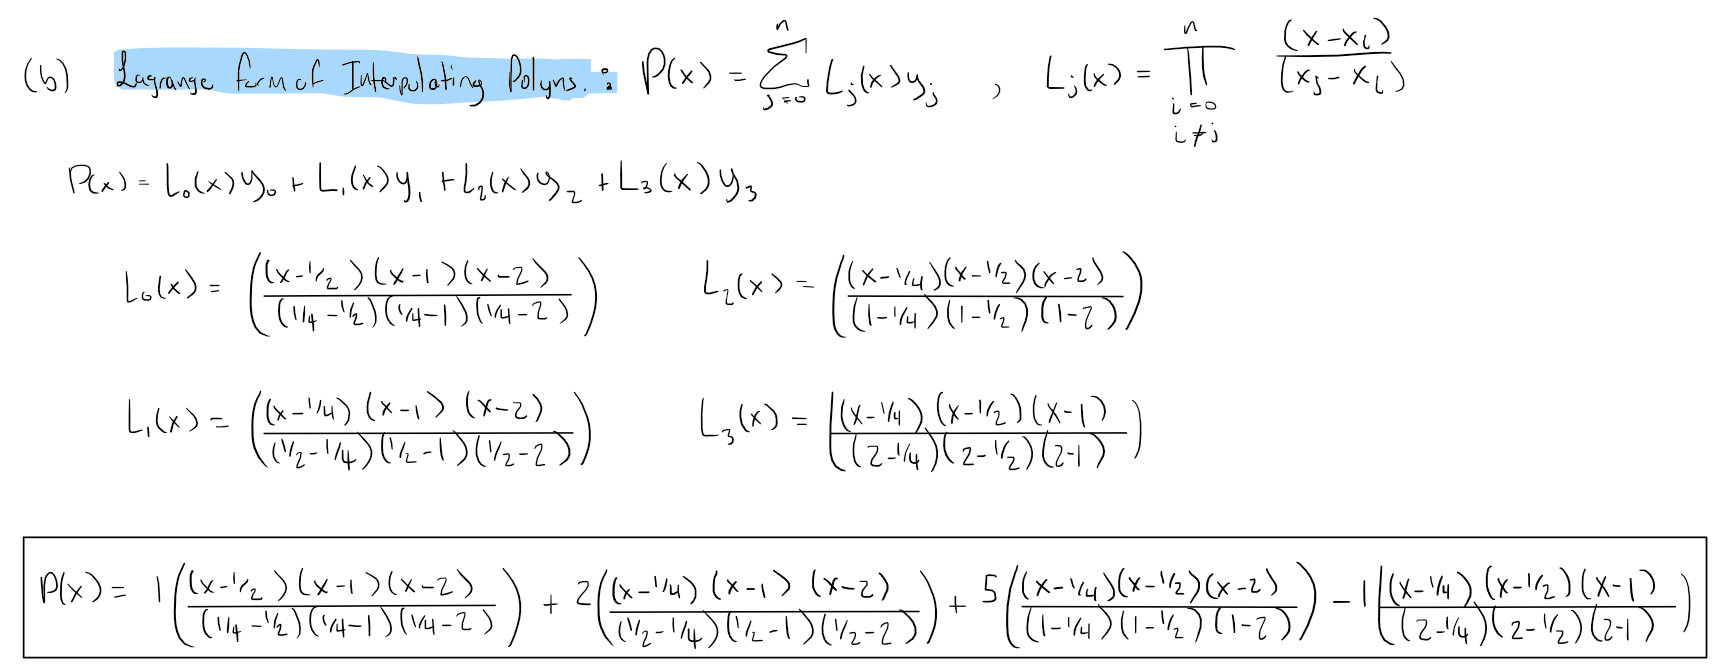 (b) Lagrange form of Interpolating Polyns. : P(x) = ∑_{j=0}^{n} L_j(x) y_j , L_j(x) = ∏_{i=0, i≠j}^{n} (x-x_i)/(x_j-x_i)
P(x) = L_0(x)y_0 + L_1(x)y_1 + L_2(x)y_2 + L_3(x)y_3
L_0(x) = ((x-1/2)(x-1)(x-2)/(1/4-1/2)(1/4-1)(1/4-2)) L_2(x) = ((x-1/4)(x-1/2)(x-2)/(1-1/4)(1-1/2)(1-2))
L_1(x) = ((x-1/4)(x-1)(x-2)/(1/2-1/4)(1/2-1)(1/2-2)) L_3(x) = ((x-1/4)(x-1/2)(x-1)/(2-1/4)(2-1/2)(2-1))
P(x) = 1((x-1/2)(x-1)(x-2)/(1/4-1/2)(1/4-1)(1/4-2)) + 2((x-1/4)(x-1)(x-2)/(1/2-1/4)(1/2-1)(1/2-2)) + 5((x-1/4)(x-1/2)(x-2)/(1-1/4)(1-1/2)(1-2)) - 1((x-1/4)(x-1/2)(x-1)/(2-1/4)(2-1/2)(2-1))